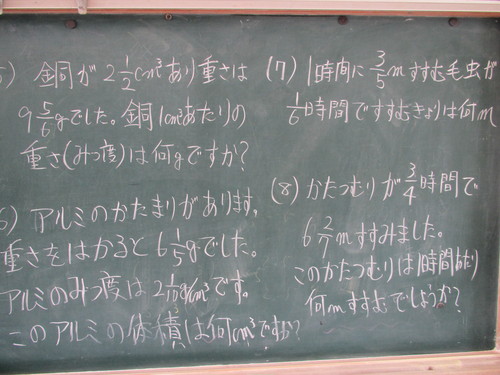 5) 銅が 2 1/2 cm³あり重さは
9 5/6 gでした。銅1cm³あたりの
重さ(みつ度)は何gですか?
6) アルミのかたまりがあります。
重さをはかると 6 1/5 gでした。
アルミのみつ度は 2 1/10 g/cm³です。
このアルミの体積は何cm³ですか?
(7) 1時間に 3/5 mすすむ毛虫が
1/6 時間ですすむきょりは何m
(8) かたつむりが 3/4 時間で
6 2/7 mすすみました。
このかたつむりは1時間あたり
何mすすむでしょうか?